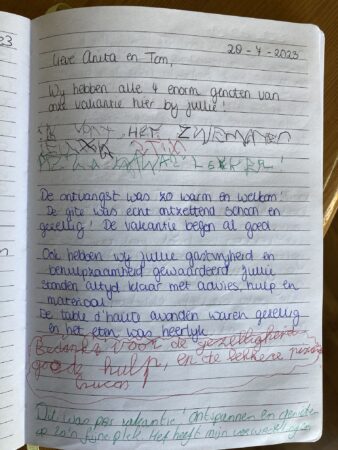 20-7-2023
Lieve Anita en Tom,
Wij hebben alle 4 enorm genoten van
onze vakantie hier bij jullie!
IK VONT HET ZWEMMEN
LEUK
De ontvangst was zo warm en welkom!
De gîte was echt ontzettend schoon en
gezellig! De vakantie begon al goed.
Ook hebben wij jullie gastvrijheid en
behulpzaamheid gewaardeerd. Jullie
stonden altijd klaar met advies, hulp en
materiaal.
De table d'hôte avonden waren gezellig
en het eten was heerlijk
Bedankt voor de gezelligheid
goede hulp, en de lekkere
Dit was pas vakantie! Ontspannen en genieten
op zo'n fijne plek. Het heeft mijn verwachtingen